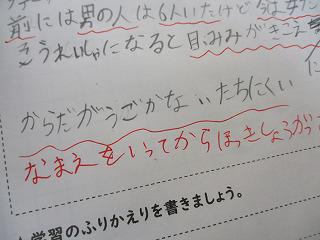 前には男の人は6人いたけど今は女た
そうれいしゃになると目みみがきこえ
からだがうごかないたちにくい
なまえをいってからはっきしょうがっ
学習のふりかえりを書きましょう。